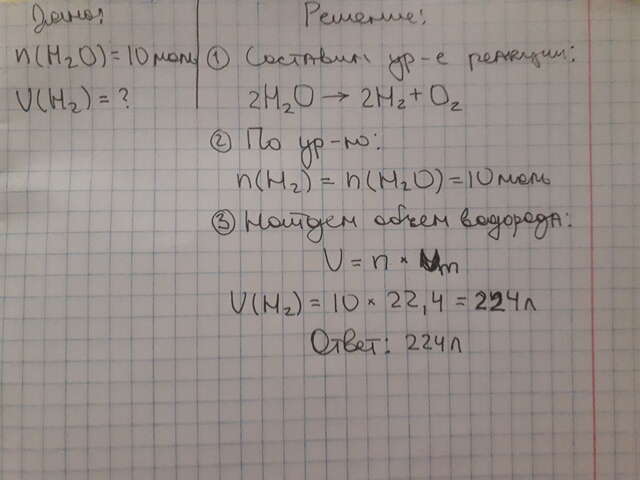 Дано:
n(H₂O) = 10 моль
V(H₂) = ?
Решение:
① Составим ур-е реакции:
2H₂O → 2H₂ + O₂
② По ур-ю:
n(H₂) = n(H₂O) = 10 моль
③ Найдем объем водорода:
V = n * Vm
V(H₂) = 10 * 22,4 = 224л
Ответ: 224л